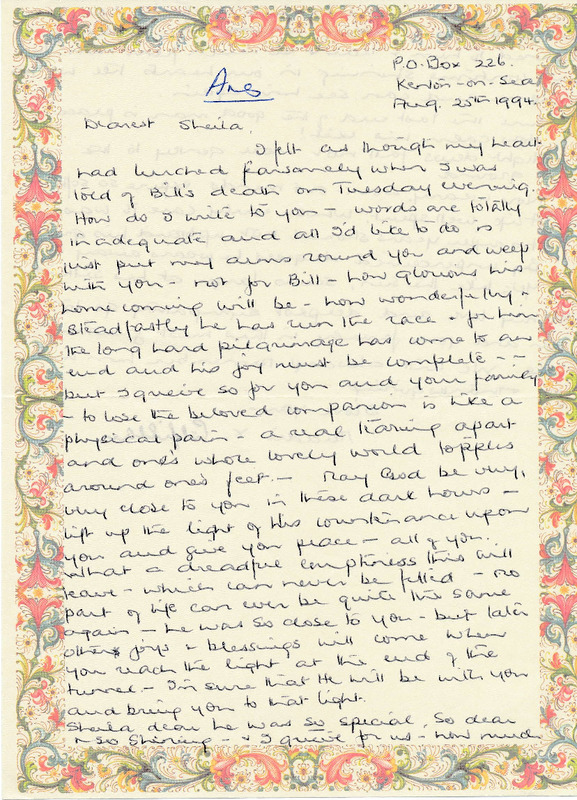 P.O. Box 226.
Kenton-on-Sea
Aug. 25th 1994.
Ans
Dearest Sheila.
I felt as though my heart
had lurched forsomely when I was
told of Bill's death on Tuesday evening.
How do I write to you - words are totally
inadequate and all I'd like to do is
just put my arms round you and weep
with you - not for Bill - how glorious his
home coming will be - how wonderfully &
steadfastly he has run the race - for him
the long hard pilgrimage has come to an
end and his joy must be complete - -
but I grieve so for you and your family
- to lose the beloved companion is like a
physical pain - a real tearing apart
and one's whole lovely world topples
around one's feet. - May God be very,
very close to you in these dark hours -
lift up the light of his countenance upon
you and give you peace - all of you.
What a dreadful emptiness this will
leave - which can never be filled - no
part of life can ever be quite the same
again - he was so close to you - but later
other joys & blessings will come when
you reach the light at the end of the
tunnel - I'm sure that He will be with you
and bring you to that light.
Sheila dear he was so special, so dear
& so shining - & I grieve for us - how much